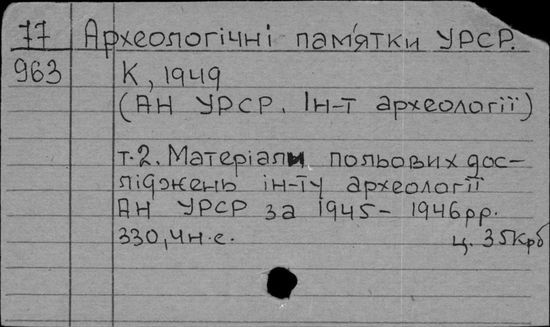 77 Археологічні пам'ятки УРСР.
963 К, 1949
(АН УРСР. Ін-т археології)
т.2. Матеріали польових дос-
ліджень ін-ту археології
АН УРСР за 1945-1946рр.
330,4н.с. ц. 35крб